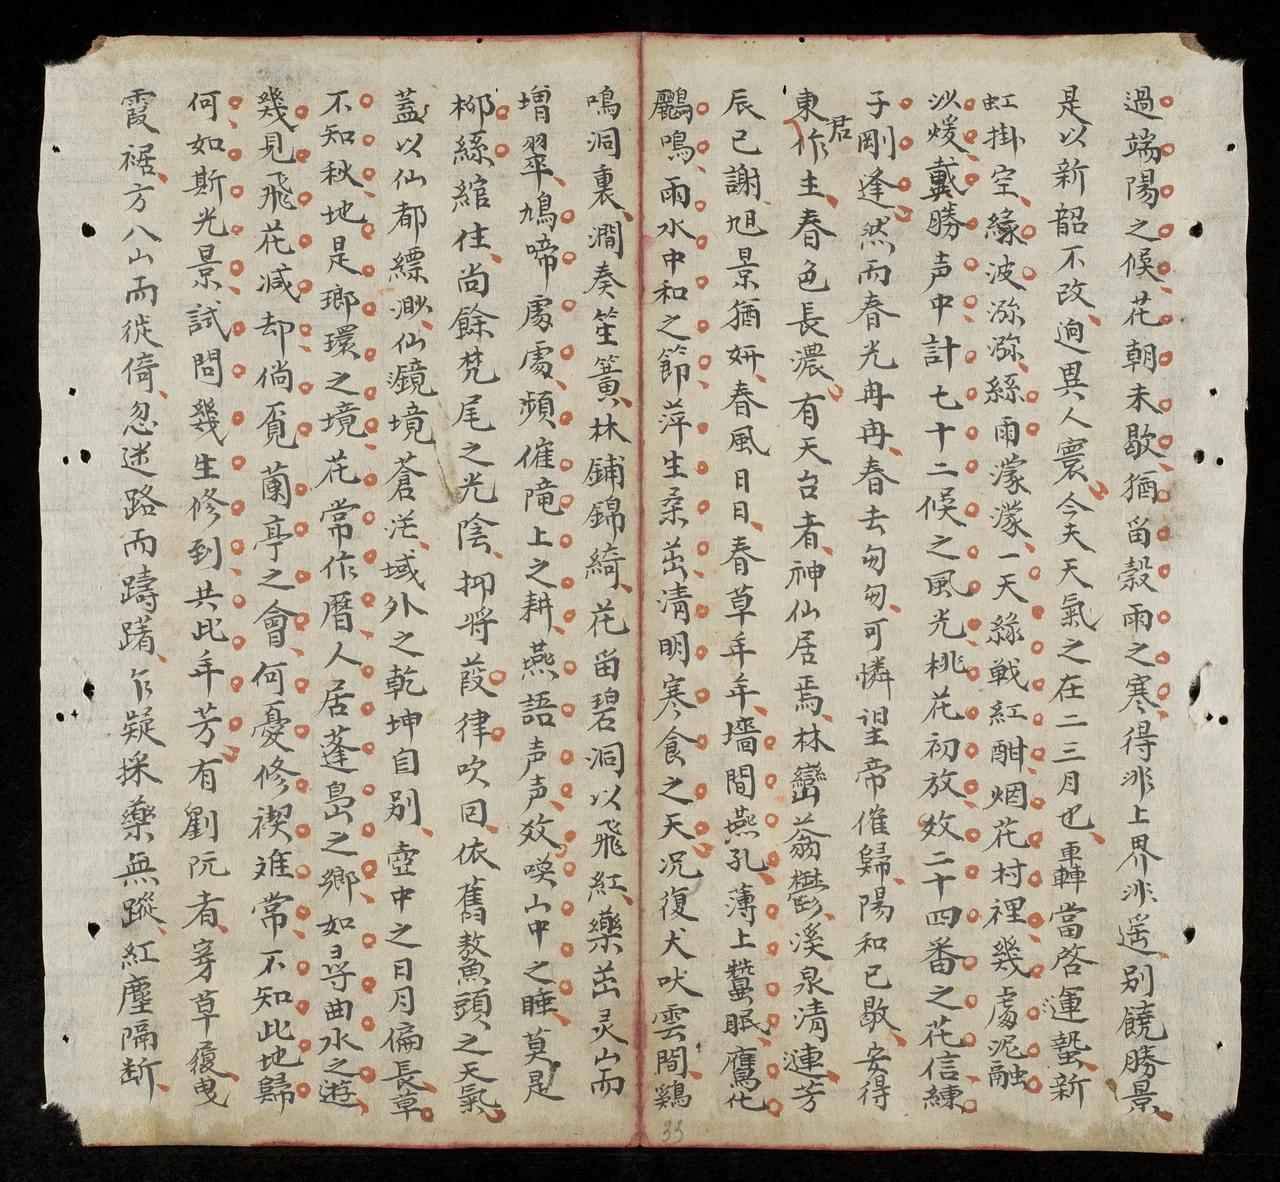 過端陽之候花朝未歇猶畱穀雨之寒得非上界非遥别饒勝景
是以新韶不改逈異人寰今夫天氣之在二三月也車轉當啓運蟄新
虹掛空緣波瀰瀰絲雨濛濛一天綠戰紅酣烟花村裡幾處泥融
沙煖戴勝声中計七十二候之風光桃花初放效二十四番之花信練
子剛逢然而春光冉冉春去匆匆可憐望帝催歸陽和已歇安得
東君作主春色長濃有天台者神仙居焉林巒蓊鬱溪泉清漣芳
辰已謝旭景猶妍春風日日春草年年墻間燕孔薄上蠶眠鷹化
鸝鳴雨水中和之節萍生柔茁清明寒食之天况復犬吠雲間鷄
鳴洞裏澗奏笙簧林鋪錦綺花畱碧洞以飛紅藥茁灵山而
增翠鳩啼處處頻催隴上之耕燕語声声效喚山中之睡莫是
柳絲綰住尚餘梵尾之光陰抑將葭律吹回依舊鰲頭之天氣
蓋以仙都縹渺仙境蒼茫域外之乾坤自别壺中之日月偏長草
不知秋地是瑯環之境花常作曆人居蓬島之鄉如尋曲水之遊
幾見飛花减却倘覓蘭亭之會何憂修禊难常不知此地歸
何如斯光景試問幾生修到共此年芳有劉阮者穿草履曳
霞裾方八山而徙倚忽迷路而躊躇乍疑採藥無蹤紅塵隔断
33